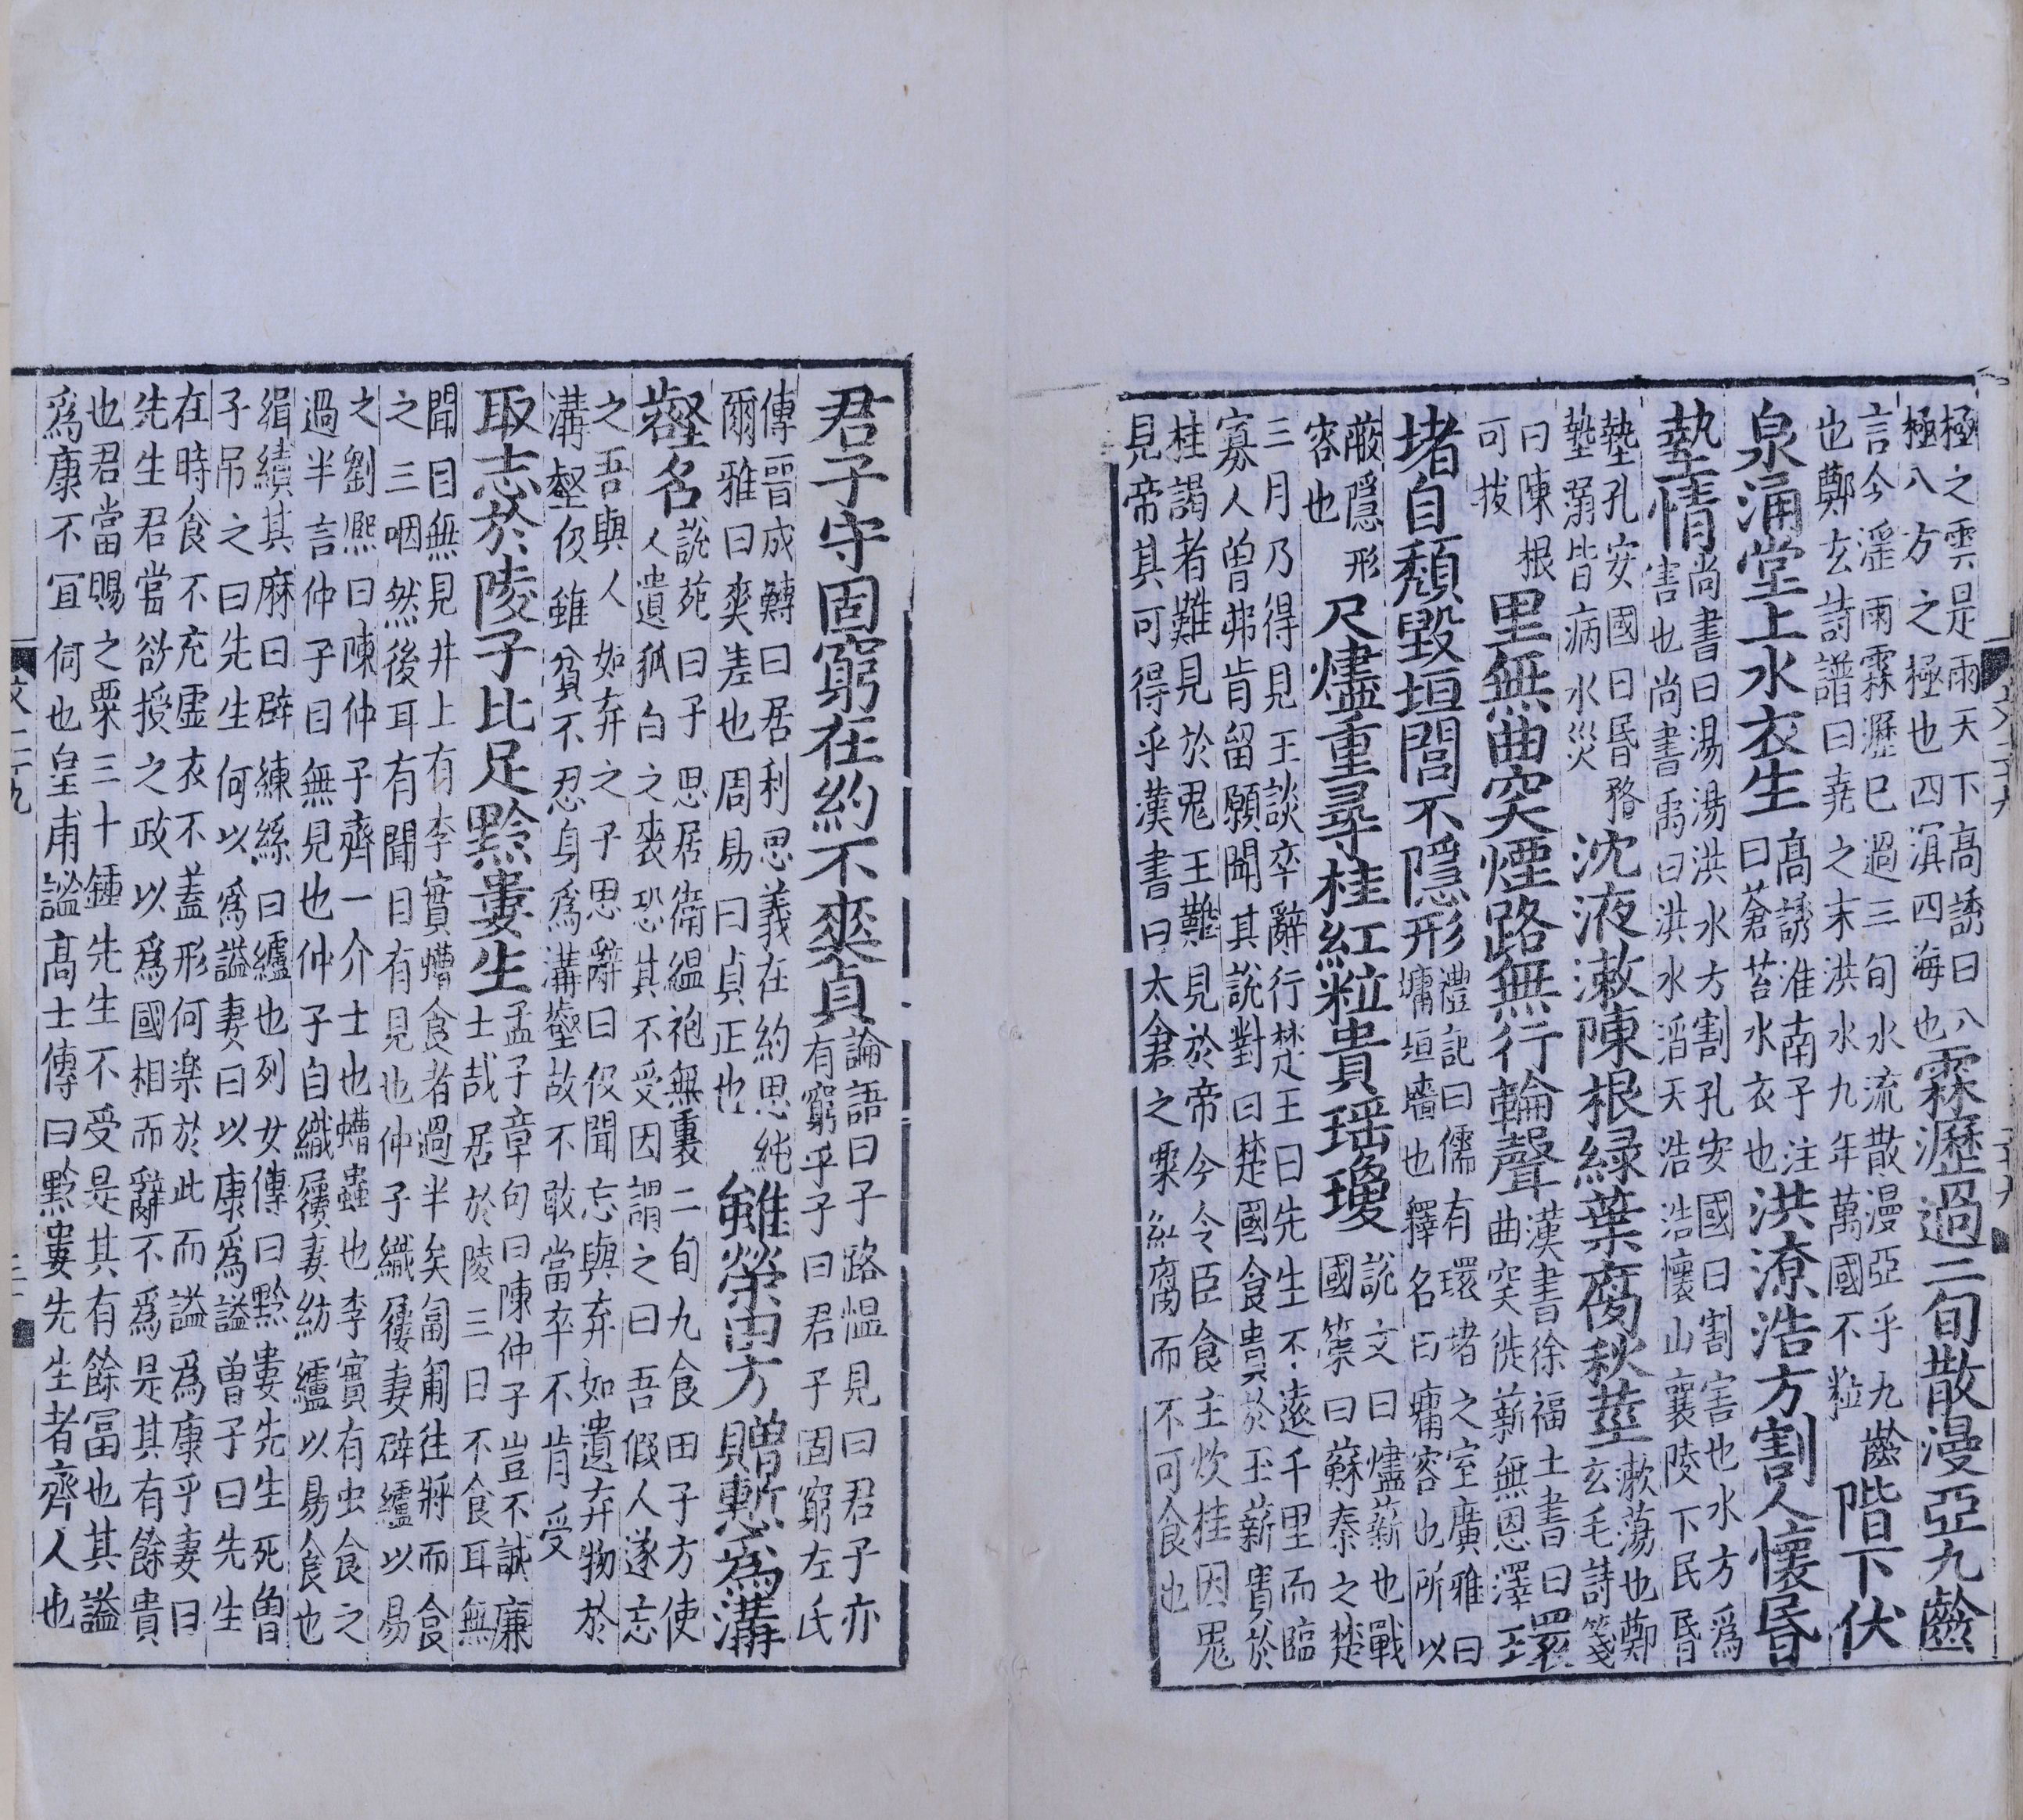 極之雲是雨天下高誘曰八
極八方之極也四滇四海也
霖瀝過二旬散漫亞九齡
言今淫雨霖瀝巳過三旬水流散漫亞乎九齡
也鄭玄詩譜曰堯之末洪水九年萬國不粒
階下伏
泉涌堂上水衣生
高誘淮南子注
曰蒼苔水衣也
洪潦浩方割人懷昏
墊情
尚書曰湯湯洪水方割孔安國曰割害也水方爲
害也尚書禹曰洪水滔天浩浩懷山襄陵下民昏
墊孔安國曰昏瞀
墊溺皆病水災
沈液漱陳根綠葉腐秋莖
漱蕩也鄭
玄毛詩箋
曰陳根
可拔
里無曲突煙路無行輪聲
漢書徐福上書曰
曲突徙薪無恩澤
環
堵自頹毀垣閭不隱形
禮記曰儒有環堵之室廣雅曰
墉垣墻也釋名曰墉容也所以
蔽隱形
容也
尺燼重尋桂紅粒貴瑶瓊
說文曰燼薪也戰
國策曰蘇秦之楚
三月乃得見王談卒辭行楚王曰先生不遠千里而臨
寡人曾弗肯留願聞其說對曰楚國食貴於玉薪貴於
桂謁者難見於鬼王難見於帝今令臣食玉炊桂因鬼
見帝其可得乎漢書曰太倉之粟紅腐而不可食也
君子守固窮在約不爽貞
論語曰子路慍見曰君子亦
有窮乎子曰君子固窮左氏
傳晉成鱄曰居利思義在約思純
爾雅曰爽差也周易曰貞正也
雖榮田方贈慙爲溝
壑名
說苑曰子思居衛縕袍無裏二旬九食田子方使
人遺狐白之裘恐其不受因謂之曰吾假人遂忘
之吾與人如弃之子思辭曰伋聞忘與弃如遺弃物於
溝壑伋雖貧不忍身爲溝壑故不敢當卒不肯受
取志於陵子比足黔婁生
孟子章句曰陳仲子豈不誠廉
士哉居於陵三日不食耳無
聞目無見井上有李實螬食者過半矣匍匐往將而食
之三咽然後耳有聞目有見也仲子織屨妻辟纑以易
之劉熈曰陳仲子齊一介士也螬蟲也李實有虫食之
過半言仲子目無見也仲子自織屨妻紡纑以易食也
緝績其麻曰辟練絲曰纑也列女傳曰黔婁先生死曾
子吊之曰先生何以爲謚妻曰以康爲謚曾子曰先生
在時食不充虛衣不蓋形何樂於此而謚爲康乎妻曰
先生君嘗欲授之政以爲國相而辭不爲是其有餘貴
也君當賜之粟三十鍾先生不受是其有餘冨也其謚
爲康不宜何也皇甫謐高士傳曰黔婁先生者齊人也